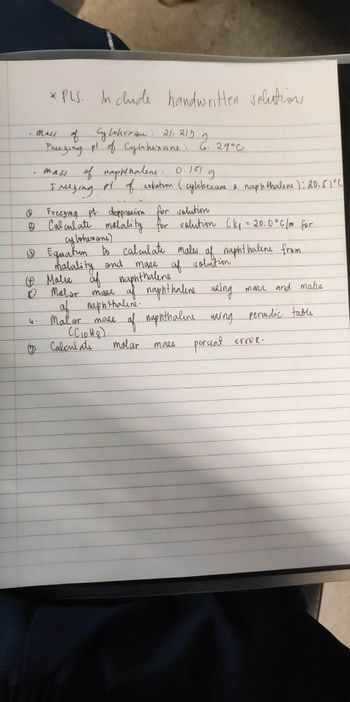 * PLS. Include handwritten solutions
• Mass of Cyclohexane: 21. g
Freezing pt of Cyclohexane: 6.29°C
• Mass of naphthalene: 0. g
Freezing pt of solution (cyclohexane & naphthalene): °C
① Freezing pt. depression for solution
② Calculate molality for solution (Kf = 20.0°C/m for
cyclohexane)
③ Equation to calculate moles of naphthalene from
molality and mass of solution
④ Moles of naphthalene
⑤ Molar mass of naphthlene using mass and moles
of naphthalene.
6. Molar mass of naphthalene using periodic table
(C10H8)
⑦ Calculate molar mass percent error.